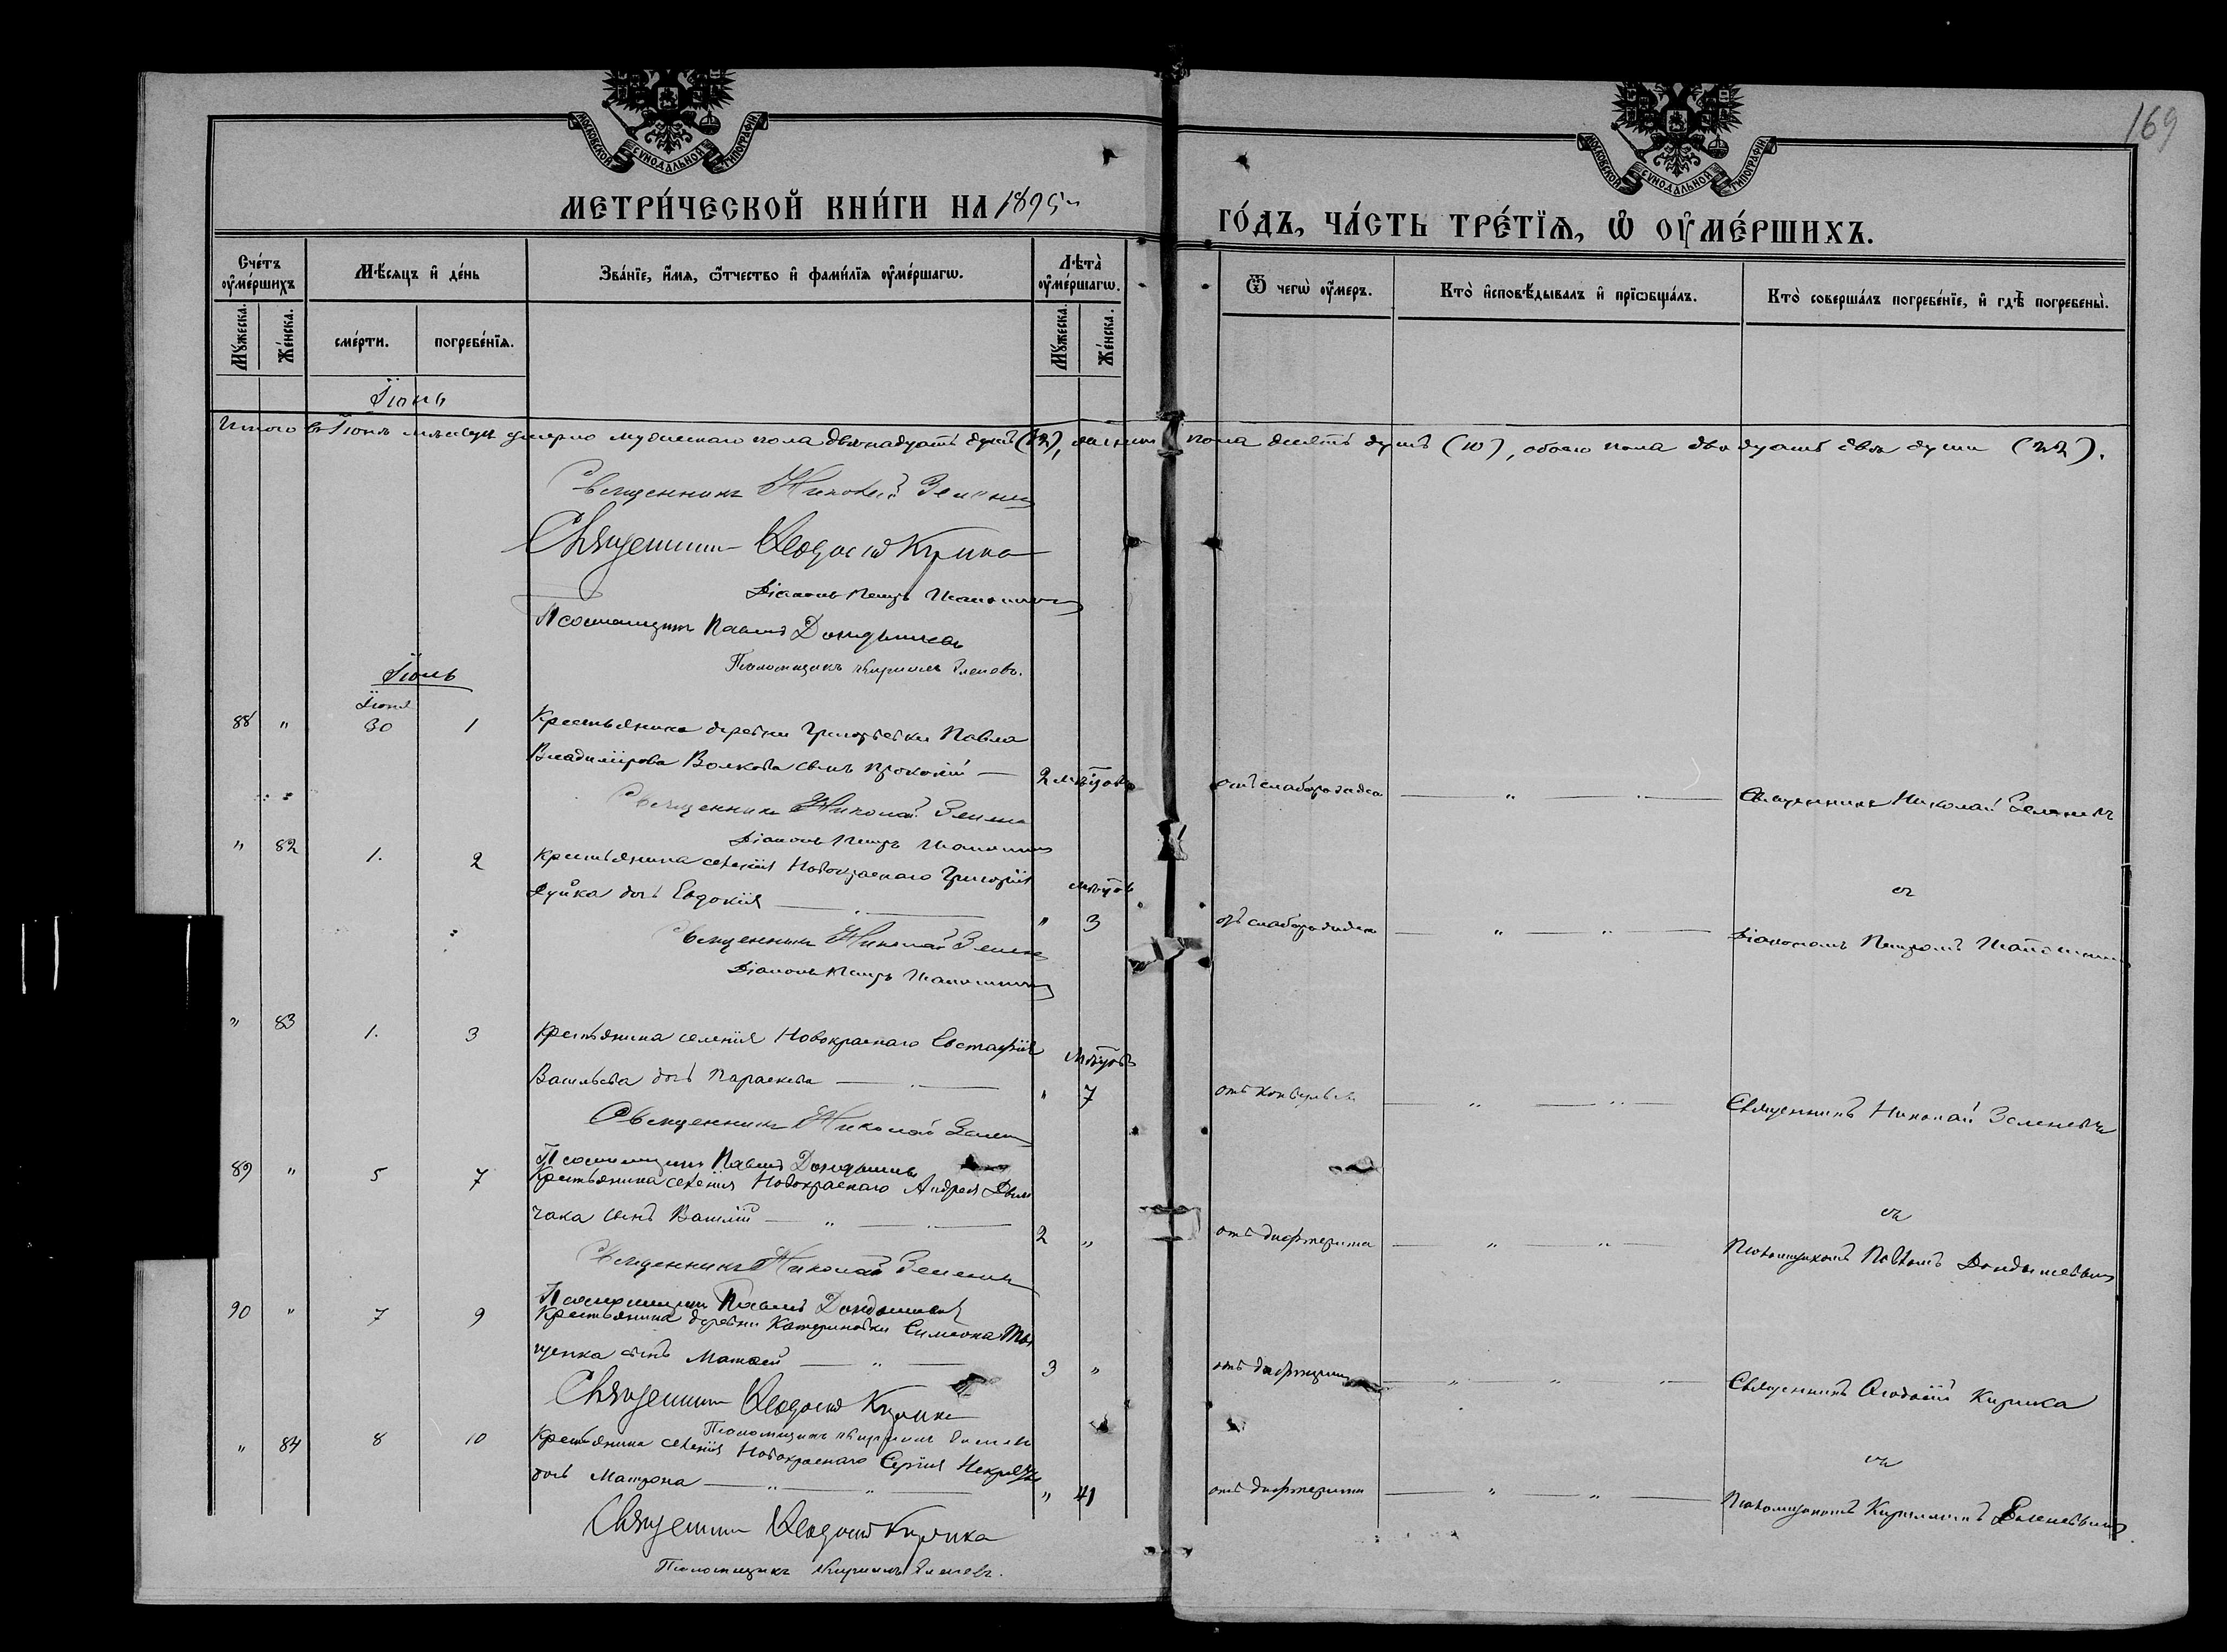 169
МОСКОВСКОЙ СѴНОДАЛЬНОЙ ТИПОГРАФІИ
МОСКОВСКОЙ СѴНОДАЛЬНОЙ ТИПОГРАФІИ
МЕТРИ́ЧЕСКОЙ КНИ́ГИ НА 1895
ГО́ДЪ, ЧА́СТЬ ТРЕ́ТЇѦ, Ѡ҆ ОУ҆МЕ́РШИХЪ.
Сче́тъ оу҆ме́ршихъ
Мѣ́сяцъ и҆ де́нь
Зва́нїе, и҆́мѧ, ѻ҆́тчество и҆ фами́лїѧ оу҆ме́ршагѡ.
Лѣта̀ оу҆ме́ршагѡ.
Ѿ чегѡ̀ оу҆́меръ.
Кто̀ и҆сповѣ́дывалъ и҆ прїѡбща́лъ.
Кто̀ соверша́лъ погребе́нїе, и҆ гдѣ̀ погребены̀.
Мꙋ́жеска.
Же́нска.
сме́рти.
погребе́нїѧ.
Мꙋ́жеска.
Же́нска.
Іюнь
Итого въ Іюнѣ мѣсяцѣ умерло мужескаго пола двѣнадцать душъ (12), женскаго пола десять душъ (10), обоего пола двадцать двѣ души (22).
Священникъ Николай Зеленевъ
Священникъ Ѳеодосій Кирика
Діаконъ Петръ
Псаломщикъ Павелъ Дондышевъ
Псаломщикъ Кириллъ
Іюль
Іюня
88 " 30 1 Крестьянина деревни Григорьевки Павла
Владимірова Волкова сынъ Прокопій — 2 мѣсяцовъ отъ слаборожденія — " — Священникъ Николай Зеленевъ
Священникъ Николай Зеленевъ
Діаконъ Петръ
" 82 1. 2 Крестьянина селенія Новокраснаго Григорія мѣсяцовъ съ
Дуйка дочь Евдокія — " 3 отъ слаборожденія — " — " — Діакономъ Петромъ
Священникъ Николай Зеленевъ
Діаконъ Петръ
" 83 1. 3 Крестьянина селенія Новокраснаго Евстафія мѣсяцовъ
Васильева дочь Параскева — " 7 отъ конвульсіи — " — " — Священникъ Николай Зеленевъ
Священникъ Николай Зеленевъ
Псаломщикъ Павелъ Дондышевъ
89 " 5 7 Крестьянина селенія Новокраснаго Андрея
чака сынъ Василій — " — 2 " отъ дифтерита — " — " — съ Псаломщикомъ Павломъ Дондышевымъ
Священникъ Николай Зеленевъ
Псаломщикъ Павелъ Дондышевъ
90 " 7 9 Крестьянина деревни Катериновки Симеона
щенка сынъ Матвей — " — 3 " отъ дифтерита — " — " — Священникъ Ѳеодосій Кирика
Священникъ Ѳеодосій Кирика
Псаломщикъ Кириллъ
" 84 8 10 Крестьянина селенія Новокраснаго Сергія съ
дочь Матрона — " — " — " 41 отъ дифтерита — " — " — Псаломщикомъ Кирилломъ
Священникъ Ѳеодосій Кирика
Псаломщикъ Кириллъ